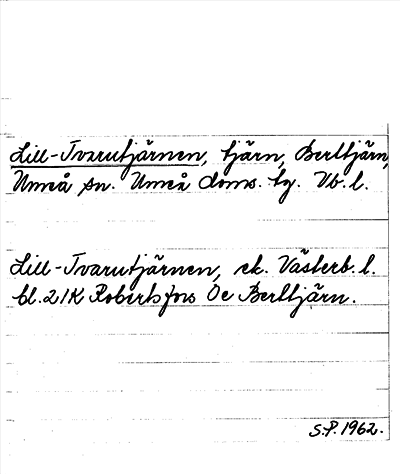 Lill-Tvarutjärnen, tjärn, Berttjärn,
Umeå sn. Umeå doms. tg. Vb. l.
Lill-Tvarutjärnen, ek. Västerb. l.
bl. 21K Robertsfors Öc Berttjärn.
S.P. 1962.